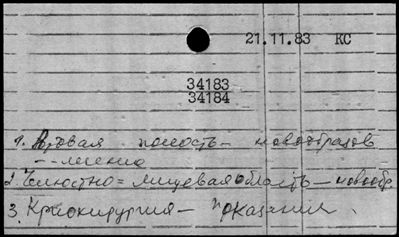 21.11.83 КС
34183
34184
1. Ротовая полость – новообразов
-- лечение
2. Челюстно = лицевая область – новообр.
3. Криохирургия – показания.